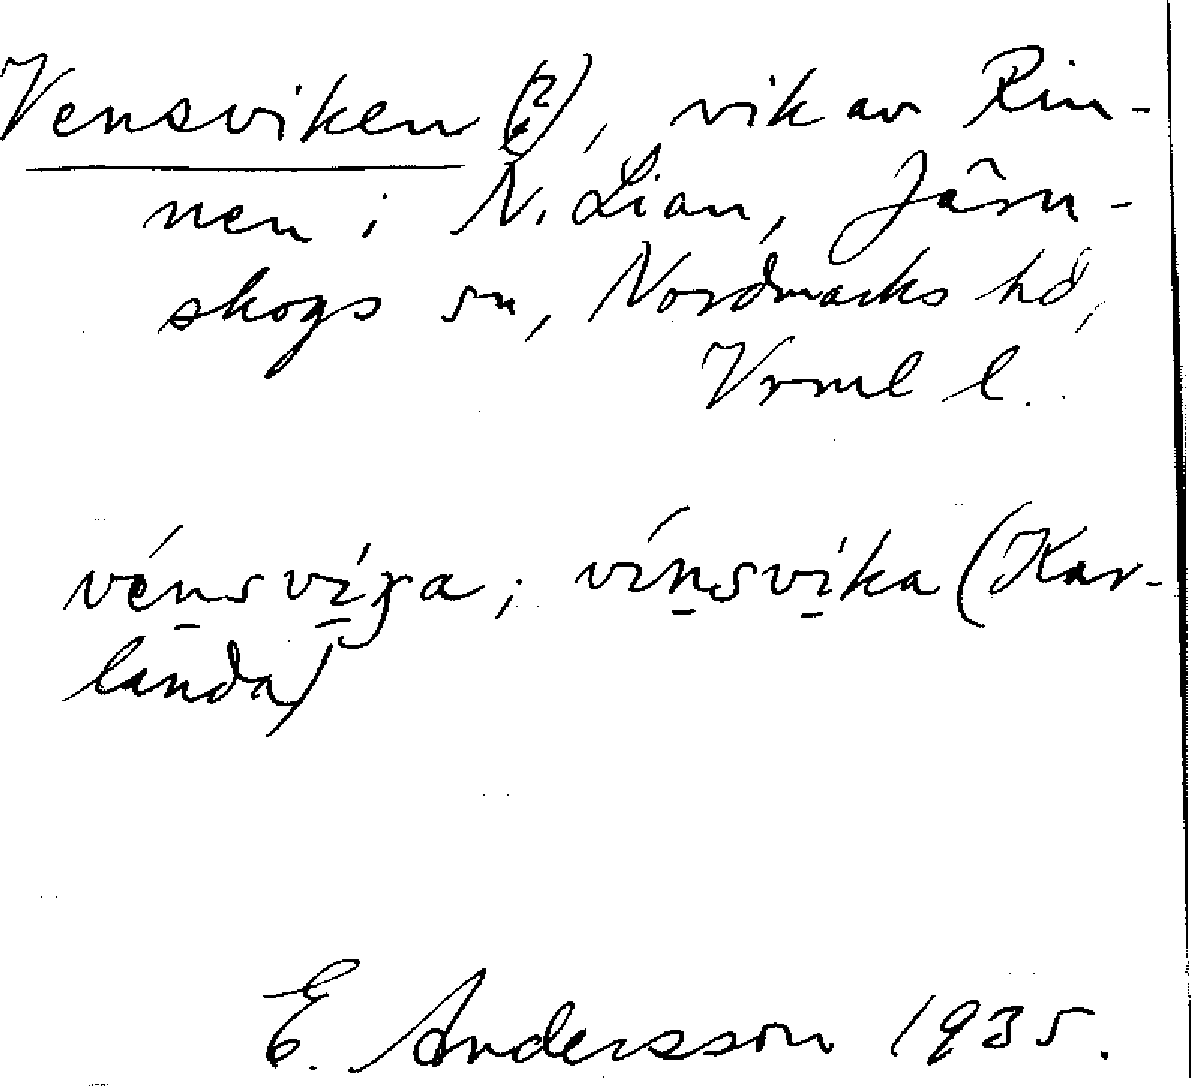 Vensviken (?), vik av Rin-
nen i N. Lian, Järn-
skogs sn, Nordmarks hd,
Vrml l.
vénsvíga; vínsvíka (Kar-
landa)
E. Andersson 1935.